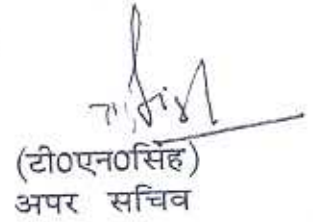 (टी0एन0सिंह)
अपर सचिव